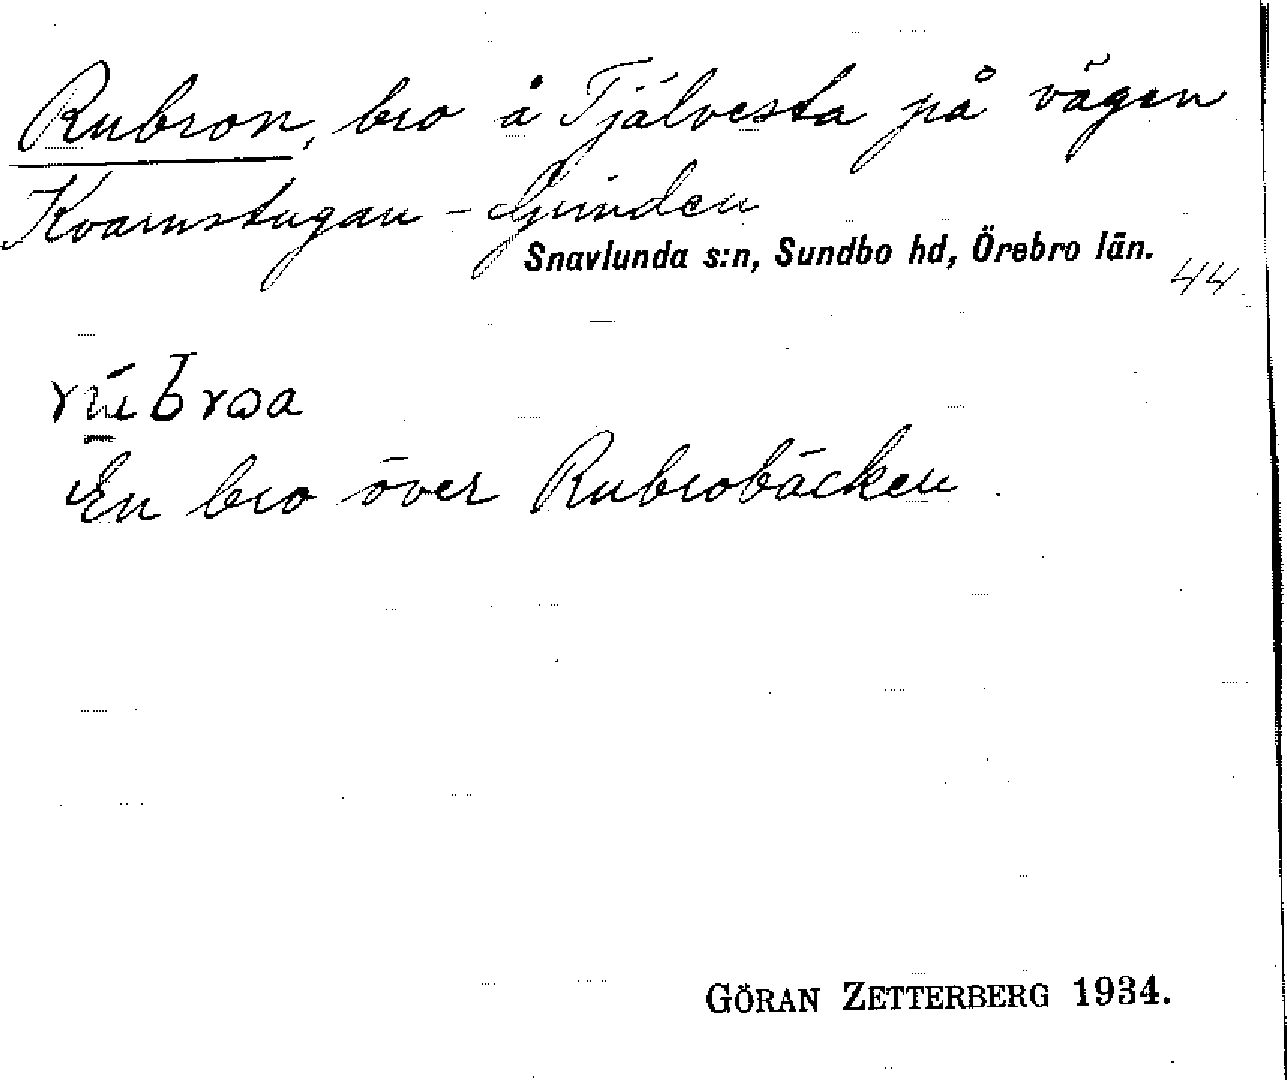 Rubron, bro å Tjälvesta på vägen
Kvarnstugan - Grinden
Snavlunda s:n, Sundbo hd, Örebro län.
44
En bro över Rubrobäcken.
GÖRAN ZETTERBERG 1934.